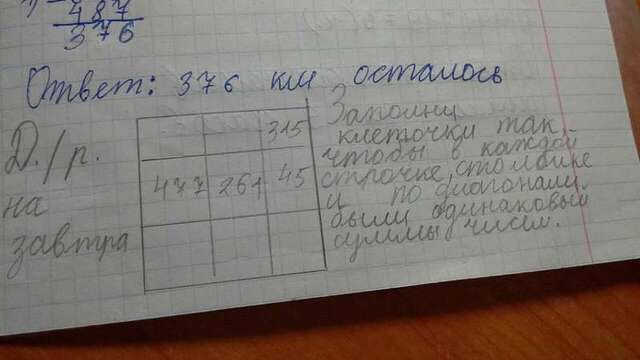 487
376
Ответ: 376 км осталось
Д./р.
на
завтра
315
477 261 45
Заполни
клеточки так,
чтобы в каждой
строчке, столбике
и по диагонали
были одинаковый
суммы чисел.